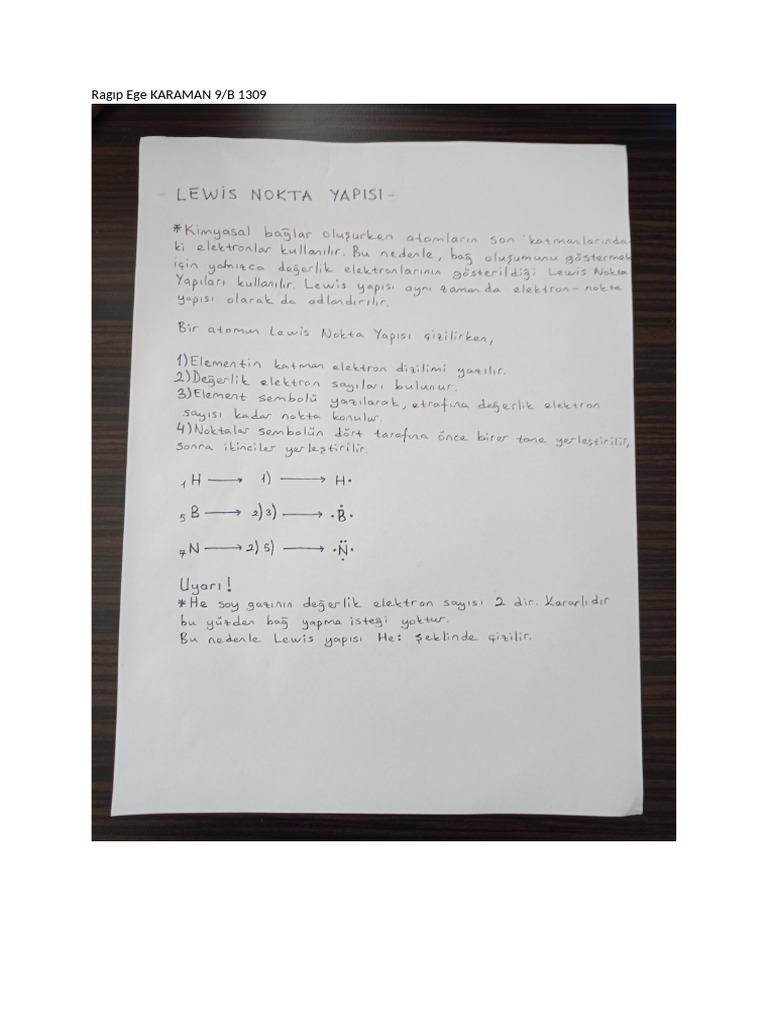 Ragıp Ege KARAMAN 9/B 1309
- LEWİS NOKTA YAPISI -
*Kimyasal bağlar oluşurken atomların son katmanlarında
ki elektronlar kullanılır. Bu nedenle, bağ oluşumunu göstermek
için yalnızca değerlik elektronlarının gösterildiği Lewis Nokta
Yapıları kullanılır. Lewis yapısı aynı zamanda elektron-nokta
yapısı olarak da adlandırılır.
Bir atomun Lewis Nokta Yapısı çizilirken,
1) Elementin katman elektron dizilimi yazılır.
2) Değerlik elektron sayıları bulunur.
3) Element sembolü yazılarak, etrafına değerlik elektron
sayısı kadar nokta konulur.
4) Noktalar sembolün dört tarafına önce birer tane yerleştirilir,
sonra ikinciler yerleştirilir.
₁H → 1) → H·
₅B → 2)3) → ·Ḃ·
₇N → 2)5) → ·N̤̈·
Uyarı!
*He soy gazının değerlik elektron sayısı 2 dir. Kararlıdır
bu yüzden bağ yapma isteği yoktur.
Bu nedenle Lewis yapısı He: şeklinde çizilir.